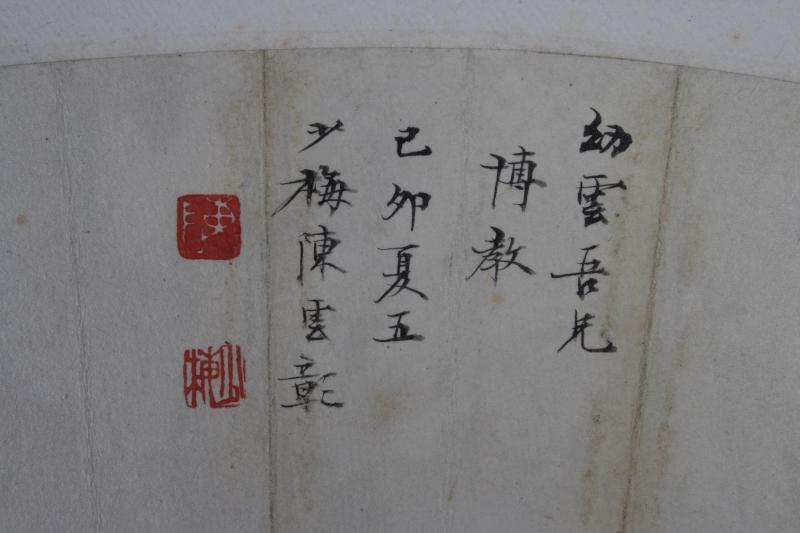 幼雲吾兄
博教
己卯夏五
少梅陳雲彰
陳